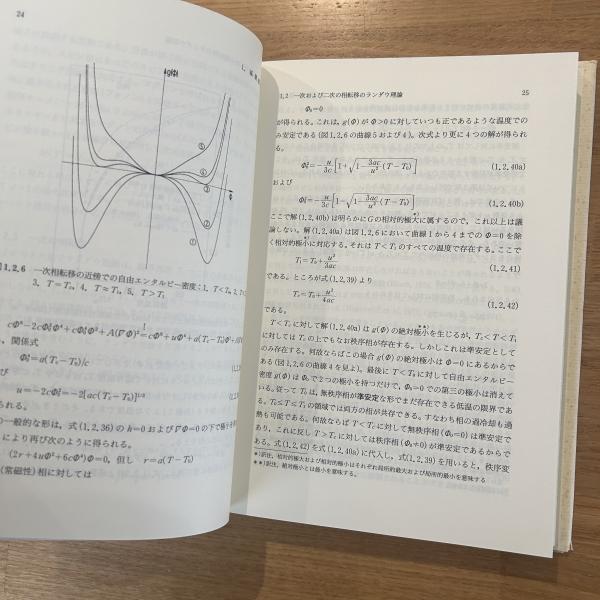 24
g(Φ)
Φ
⑤
④
③
②
①
1.2.6 一次相転移の近傍での自由エンタルピー密度:1, T<T₀, 2,
3, T=T₀, 4, T≈T₁, 5, T>T₁
関係式
Φ₀²=a(T_c-T₀)/c
び
u=-2cΦ₀²=-2[ac(T_c-T₀)]^{1/2}
られる。
の一般的な形は,式(1.2.36)の h=0 および ∇Φ=0 の下で
により再び次のように得られる。
(2r+4uΦ²+6cΦ⁴)Φ=0, 但し r=a(T-T₀)
(常磁性)相に対しては
1.2 一次および二次の相転移のランダウ理論 25
Φ₀=0
が得られる。これは, g(Φ) が Φ>0 に対していつも正であるような温度での
み安定である(図1.2.6の曲線5および4)。次式より更に4つの解が得られ
る。
Φ₀²=-u/3c[1+√1-3ac/u²(T-T₀)] (1.2.40a)
および
Φ₀²=-u/3c[1-√1-3ac/u²(T-T₀)] (1.2.40b)
ここで解(1.2.40b)は明らかにGの相対的極大に属するので,これ以上は議
論しない。解(1.2.40a)は図1.2.6において曲線1から4までの Φ=0 を除
く相対的極小に対応する。それは T<T₁ のすべての温度で存在する。ここで
T₁=T₀+u²/3ac (1.2.41)
である。ところが式(1.2.39)より
T_c=T₀+u²/4ac (1.2.42)
である。
T<T_c に対して解(1.2.40a)は g(Φ) の絶対極小を生じるが, T_c<T<T₁
に対しては T_c の上でもなお秩序相が存在する。しかしこれは準安定として
のみ存在する。何故ならばこの場合 g(Φ) の絶対極小は Φ=0 にあるからで
ある(図1.2.6の曲線4を見よ)。最後に T<T₀ に対して自由エンタルピー
密度 g(Φ) は Φ₀ で2つの極小を持つだけで, Φ₀=0 での第三の極小は消えて
いる。従って T₀ は,無秩序相が準安定な形でまだ存在できる低温の限界であ
る。T₀≤T<T₁ の領域では両方の相が共存できる。すなわち相の過冷却も過
熱も可能である。何故ならば T<T_c に対して無秩序相(Φ₀=0)は準安定で
あり,これに反し T>T_c に対しては秩序相(Φ₀≠0)が準安定であるからで
ある。式(1.2.42)を式(1.2.40a)に代入し,式(1.2.39)を用いると,秩序変
*)訳注,相対的極大および相対的極小はそれぞれ局所的最大および局所的最小を意味する
**)訳注,絶対極小とは最小を意味する。